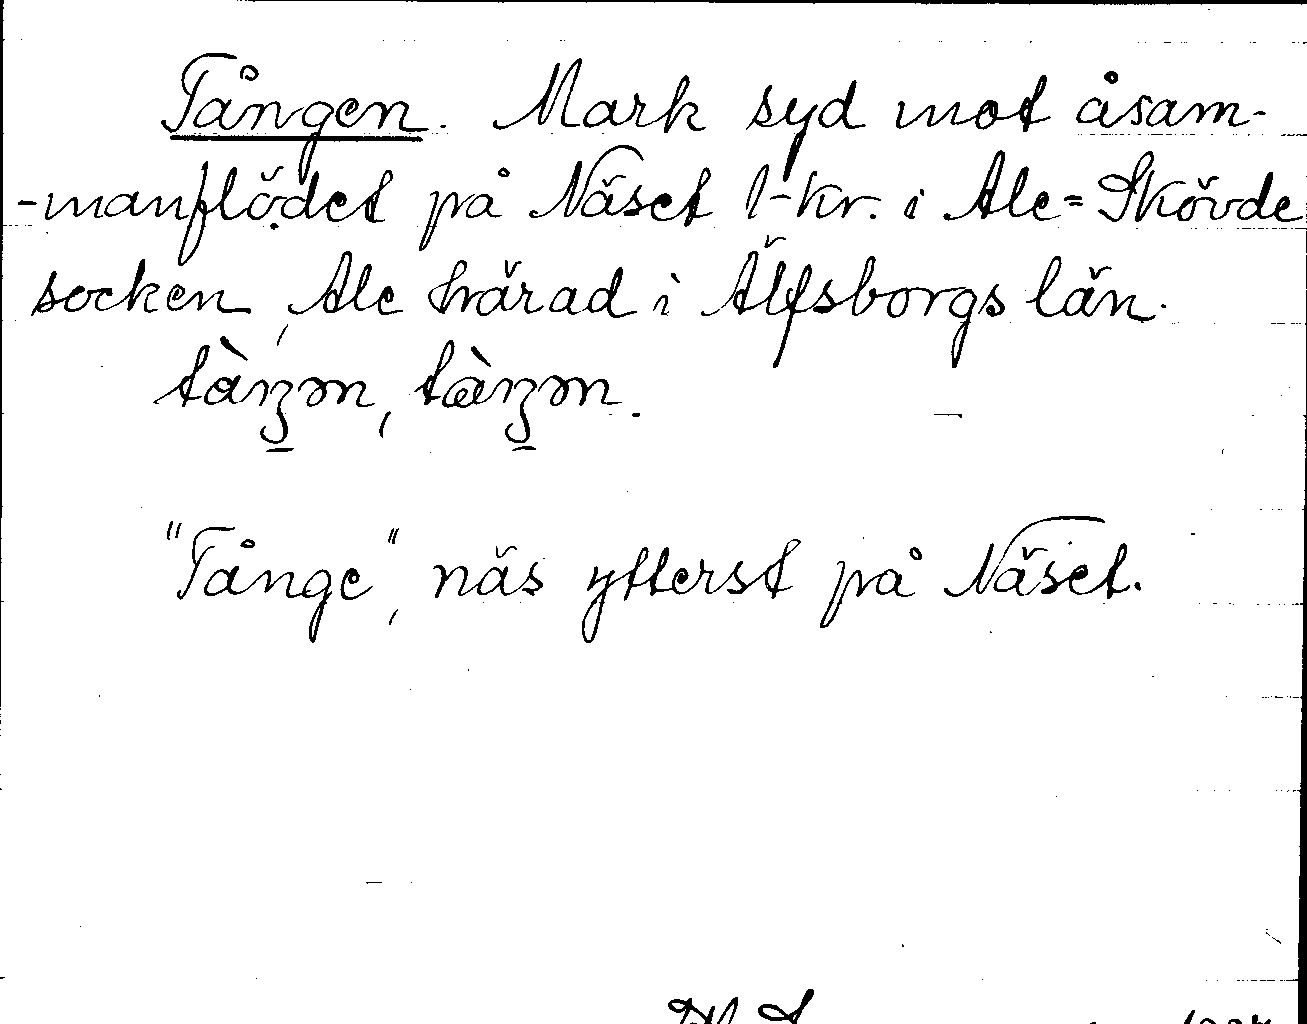 Tången. Mark syd mot åsam-
-manflödet på Näset 1-kr. i Ale=Skövde
socken, Ale härad i Älfsborgs län.
"Tånge", näs ytterst på Näset.